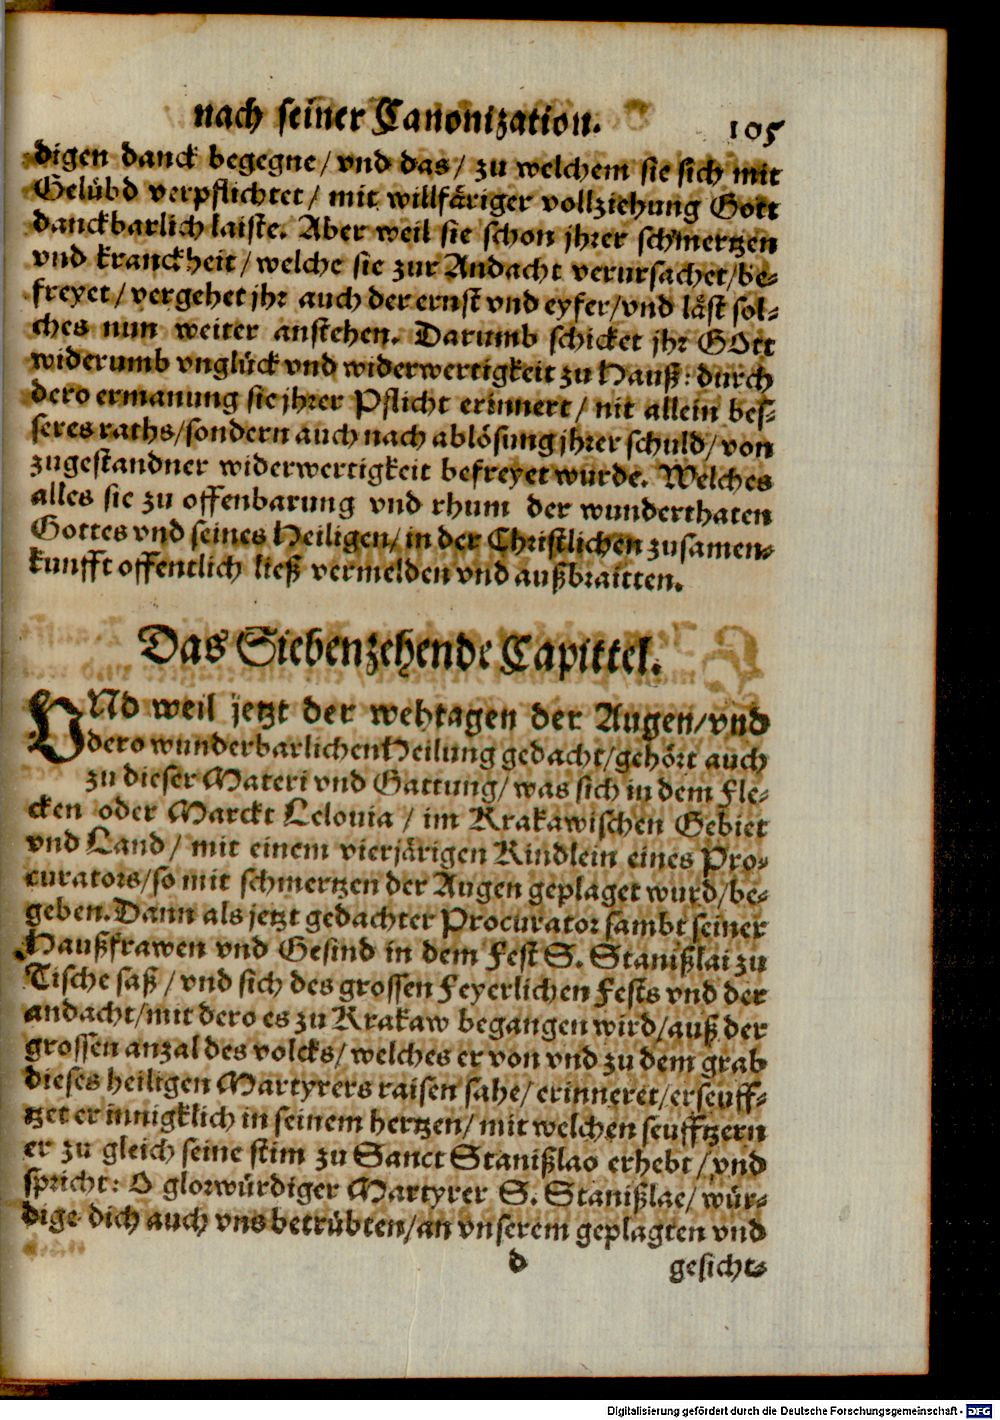 nach seiner Canonization. 105
digen danck begegne/ vnd das/ zu welchem sie sich mit
Gelübd verpflichtet/ mit willfäriger vollziehung Gott
danckbarlich laiste. Aber weil sie schon jhrer schmertzen
vnd kranckheit/ welche sie zur Andacht verursachet/ be⸗
freyet/ vergehet jhr auch der ernst vnd eyfer/ vnd läst sol⸗
ches nun weiter anstehen. Darumb schicket jhr GOtt
widerumb vnglück vnd widerwertigkeit zu Hauß: durch
dero ermanung sie jhrer Pflicht erinnert/ nit allein bes⸗
seres raths/ sondern auch nach ablösung jhrer schuld/ von
zugestandner widerwertigkeit befreyet wurde. Welches
alles sie zu offenbarung vnd rhum der wunderthaten
Gottes vnd seines Heiligen/ in der Christlichen zusamen⸗
kunfft offentlich ließ vermelden vnd außbraitten.
Das Siebenzehende Capittel.
VNd weil jetzt der wehtagen der Augen/ vnd
dero wunderbarlichen Heilung gedacht/ gehört auch
zu dieser Materi vnd Gattung/ was sich in dem Fle⸗
cken oder Marckt Lelouia/ im Krakawischen Gebiet
vnd Land/ mit einem vierjärigen Kindlein eines Pro⸗
curators/ so mit schmertzen der Augen geplaget wurd/ be⸗
geben. Dann als jetzt gedachter Procurator sambt seiner
Haußfrawen vnd Gesind in dem Fest S. Stanißlai zu
Tische saß/ vnd sich des grossen Feyerlichen Fests vnd der
andacht/ mit dero es zu Krakaw begangen wird/ auß der
grossen anzal des volcks/ welches er von vnd zu dem grab
dieses heiligen Martyrers raisen sahe/ erinneret/ erseuff⸗
tzet er innigklich in seinem hertzen/ mit welchen seufftzern
er zu gleich seine stim zu Sanct Stanißlao erhebt/ vnd
spricht: O glorwürdiger Martyrer S. Stanißlae/ wür⸗
dige dich auch vns betrübten/ an vnserem geplagten vnd
d gesicht⸗
Digitalisierung gefördert durch die Deutsche Forschungsgemeinschaft - DFG